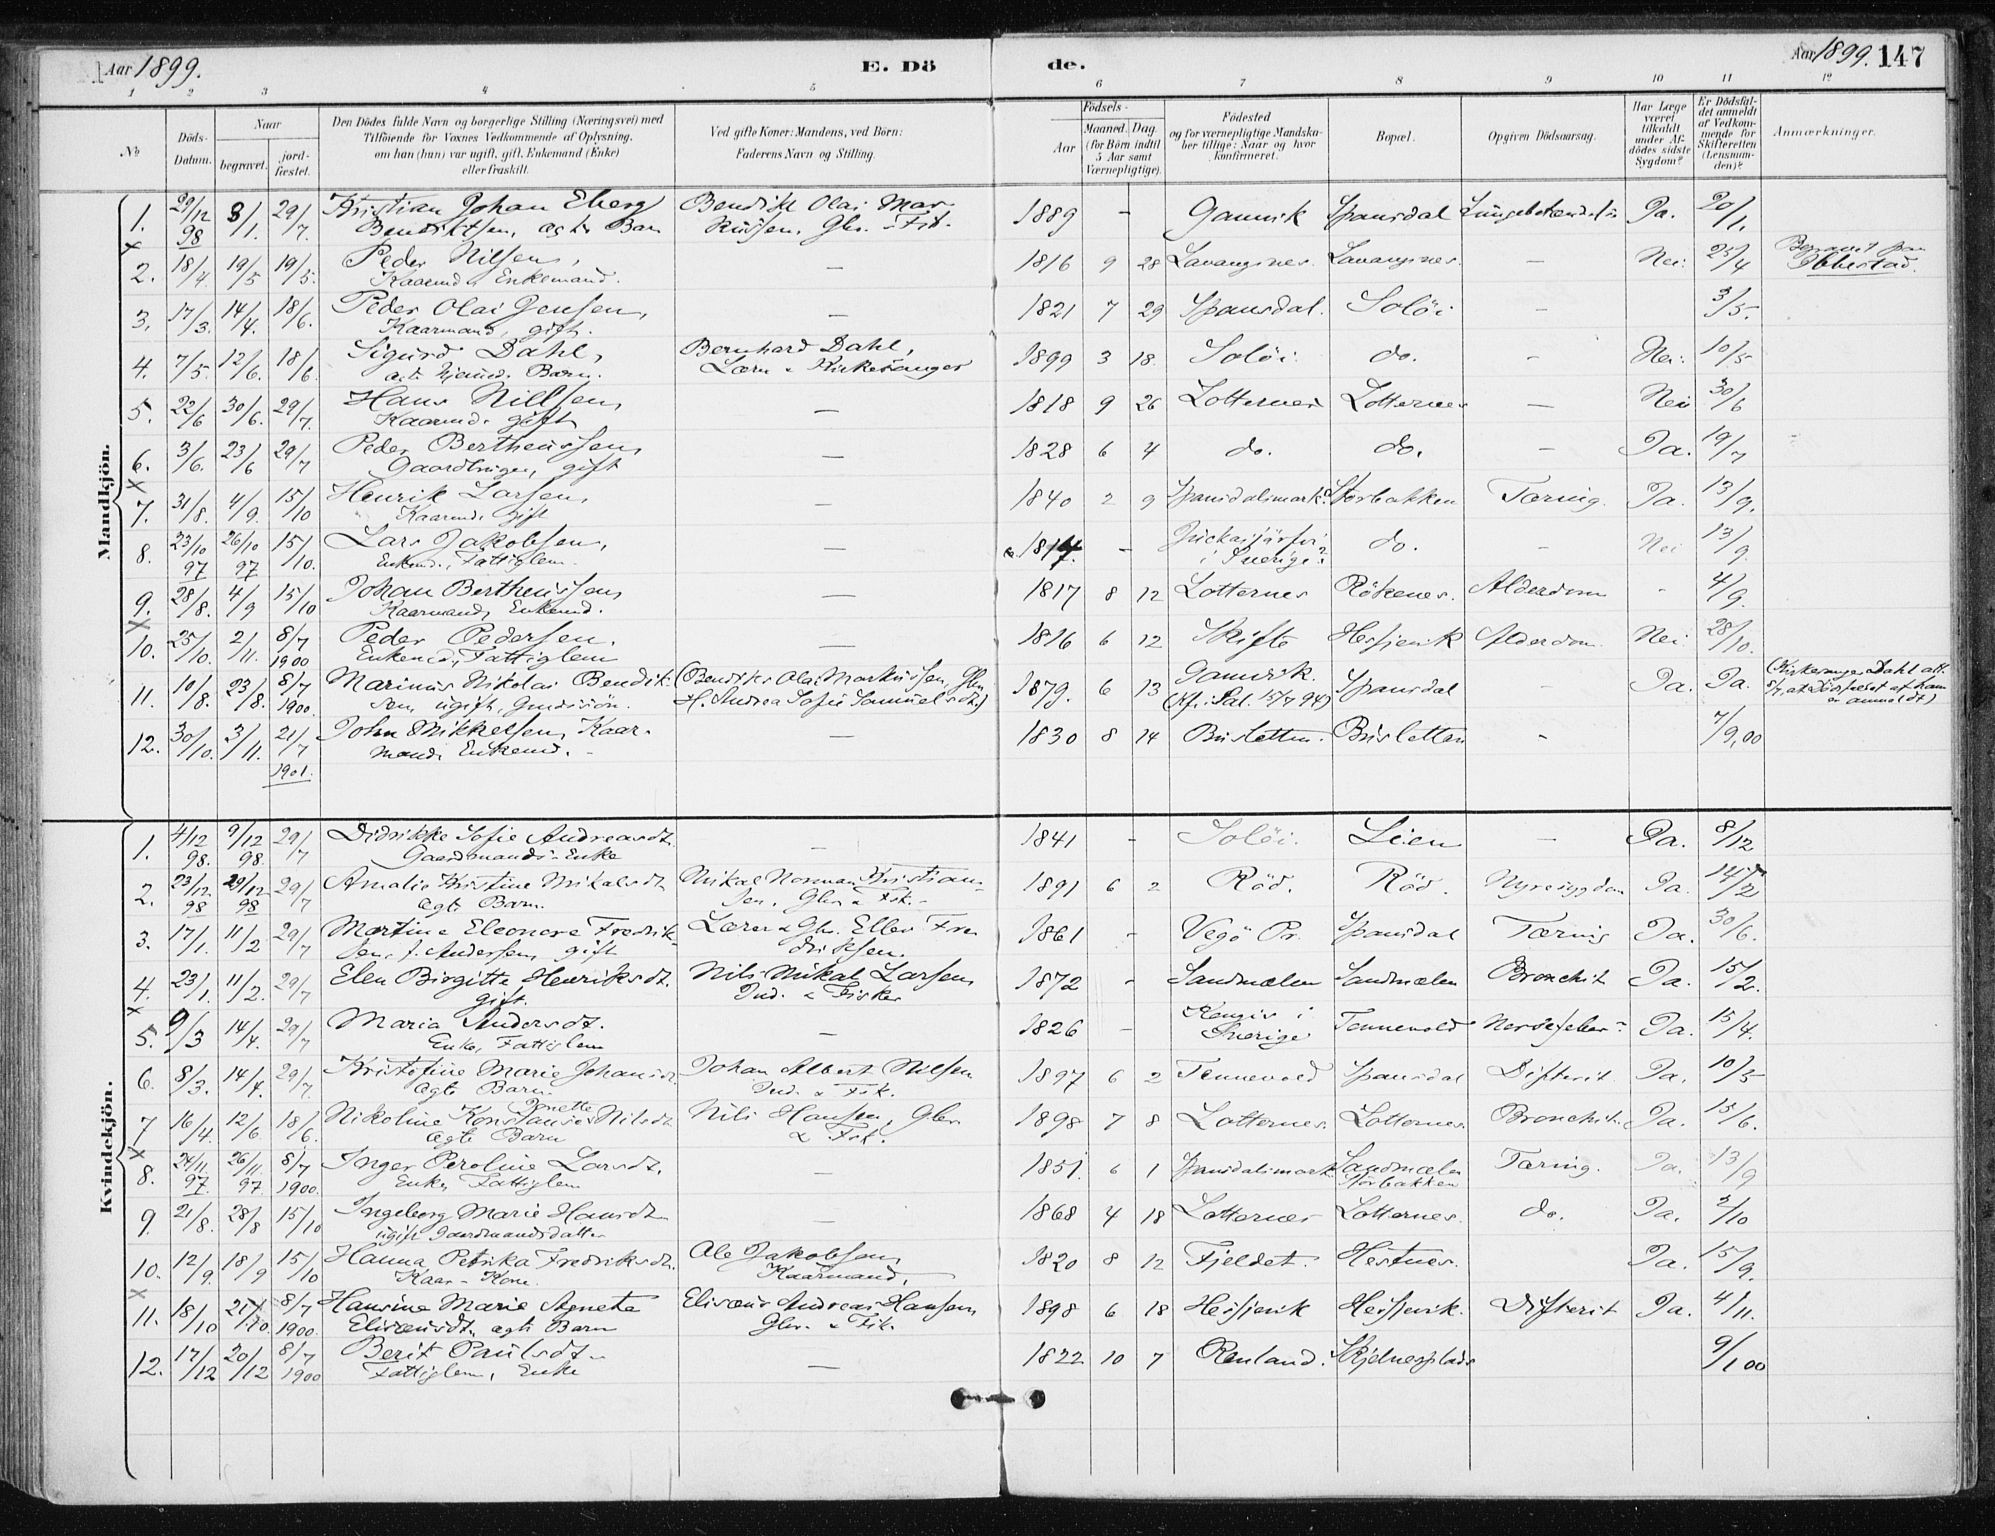 Aar 1899. E. Dö de. Aar 1899. 147
1 2 3 4 5 6 7 8 9 10 11 12
No Döds-Datum. Naar begravet. jord-fæstet. Den Dödes fulde Navn og borgerlige Stilling (Næringsvei) med Tilföiende for Voxnes Vedkommende af Oplysning, om han (hun) var ugift, gift, Enkemand (Enke) eller fraskilt. Ved gifte Koner: Mandens, ved Börn: Faderens Navn og Stilling. Födsels- Aar Maaned. Dag. (for Börn indtil 5 Aar samt Værnepligtige). Födested og for værnepligtige Mandska-ber tillige: Naar og hvor konfirmeret. Bopæl. Opgiven Dödsaarsag. Har Læge været tilkaldt under Af-dödes sidste Sygdom? Er Dödsfal-det anmeldt af Vedkom-mende for Skifteretten (Lensman-den)? Anmærkninger.
Mandkjön.
1. 29/12 98 3/1. 29/7. Kristian Johan Eberg Bendikt Olai Mar- 1889 - Gamvik Spansdal Ja. 20/1.
Bendiktsen, ægte Barn kussen, Gbr. Fsk.
2. 18/4 19/5 19/5. Peder Nilsen, — 1816 9 28 Lavangsnes. Lavangsnes. — Nei. 25/4 Begravet paa
Kaarmd. Enkemand. Ibbestad.
3. 17/3. 14/4. 18/6. Peder Olai Jensen, — 1821 7 29 Spansdal. Solöi — 3/5.
Kaarmand, gift.
4. 7/5. 12/6. 18/6. Sigurd Dahl, Bernhard Dahl, 1899 3 18. Solöi. do. - Nei. 10/5
Barn. Lærer & Kirkesanger
5. 22/6 30/6. 29/7. Hans Nilsen, — 1818 9 26 Lotternes Lotternes — Nei 30/6
Kaarmd. gift
6. 3/6. 23/6 29/7 Peder Bertheussen, — 1828 6 4 do. do. - Ja. 19/7
Gaardbruger, gift
7. 31/8. 4/9. 15/10 Henrik Larsen, — 1840 2 9 Spansdalsmark. Storbakken Tæring. Ja. 13/9.
Kaarmd. gift
8. 23/10 97 26/10 97 15/10. Lars Jakobsen, — - do. - Nei 13/9.
Enkemd., Fattiglem. i Sverige?
9. 28/8. 4/9 15/10 Johan Bertheussen, — 1817 8 12 Lotternes Rökenes. Alderdom - 4/9.
Kaarmand, Enkemd.
10. 25/10. 2/11. 8/7 1900 Peder Pedersen. — 1816 6 12 Skifte Hesjevik Alderdom. Nei. 28/10.
Enkemd, Fattiglem
11. 10/8. 23/8. 8/7 1900. Marinus Nikolai Bendik- (Bendikt Olai Markussen, Gbr. 1879. 6 13 Gamvik. Spansdal - Ja. Ja. (Kirkesanger Dahl att.
sen, ugift, H. Andrea Sofie Samuelsdt.) (Kf. i Sal. 15/7 94) at Dödsfaldet af ham
er anmeldt)
12. 30/10. 3/11. 21/7 1901. John Mikkelsen, Kaar- — 1830 8 14 Brisletten. Brisletten - 7/9,00
mand, Enkemd. -
Kvindekjön.
1. 4/12 98. 9/12 98. 29/7 Didrikke Sofie Andreasdt. — 1841 - Solöi. Leien — Ja. 8/12
Gaardmands-Enke
2. 23/12 98 29/12 98 29/7 Amalie Kristine Mikalsdt Mikal Norman Kristian- 1891 6 2 Röd. Röd. Nyresygdom Ja. 14/2
ægte Barn. sen, Gbr & Fsk. -
3. 17/1. 11/2 29/7 Martine Eleonore Fredrik- Lærer & Gbr. Eller Fre 1861 - Vegö Pr. Spansdal Tæring Ja. 30/6.
sen, f. Andersen, gift driksen.
4. 23/1. 11/2. 29/7 Elen Birgitte Henriksdt. Nils Mikal Larsen 1872 - Sandmælen Sandmælen Bronchit Ja. 15/2.
gift. Ind. & Fisker
5. 9/3 14/4. 29/7 Maria Andersdt. — 1826 - Tennevold Ja. 15/4.
Enke, Fattiglem Sverige
6. 8/3. 14/4. 29/7. Kristofine Marie Johansdt. Johan Albert Nilsen 1897 6 2 Tennevold Spansdal Difterit. Ja. 10/5
ægte Barn Ind. & Fsk.
7 16/4. 12/6. 18/6. Nikoline Konstanse Nilsdt Nils Hansen, Gbr. 1898 7 8 Lotternes. Lotternes. Bronchit. Ja. 15/6.
ægte Barn & Fsk.
8. 24/11. 97. 26/11. 97 8/7 1900. Inger Peroline Larsdt. — 1851. 6 1 Spansdalsmark. Sandmælen Tæring. Ja. 13/9
Enke, Fattiglem Storbakken
9. 21/8. 28/8 15/10 Ingeborg Marie Hansdt — 1868 4 18 Lotternes Lotternes. do. Ja. 2/10
ugift Gaardmandsdatter
10. 12/9. 18/9 15/10 Hanna Petrika Fredriksdt. Ole Jakobsen, 1820 8 12 Fjeldet. Hestnes. Ja. 15/9.
Kaar-Kone. Kaarmand,
11. 18/10 21/10. 8/7 1900. Hansine Marie Agnete Elisæus Andreas Hansen, 1898 6 18 Hesjevik Hesjevik. Difterit Ja. 4/11.
Elisæusdt., ægte Barn Gbr. & Fsk.
12. 17/12 20/12 8/7 1900 Berit Paulsdt. — 1822 10 7 Renland. Skjelnesplads 9/1 00
Fattiglem, Enke